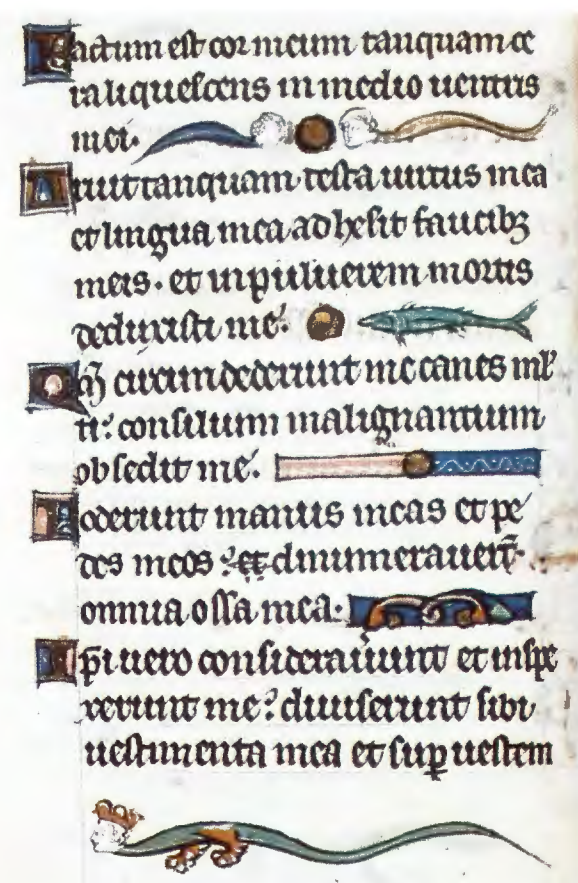 Factum est cor meum tanquam ce
ra liquescens in medio uentris
mei.
Aruit tanquam testa uirtus mea
et lingua mea adhesit faucibꝫ
meis. et in puluerem mortis
deduxisti me.
Qm̄ circumdederunt me canes ml̓
ti: consilium malignantium
obsedit me.
Foderunt manus meas et pe
des meos: et dinumerauer̄t
omnia ossa mea.
Ip̄i uero considerauerunt et inspe
xerunt me: diuiserunt sibi
uestimenta mea et suꝑ uestem